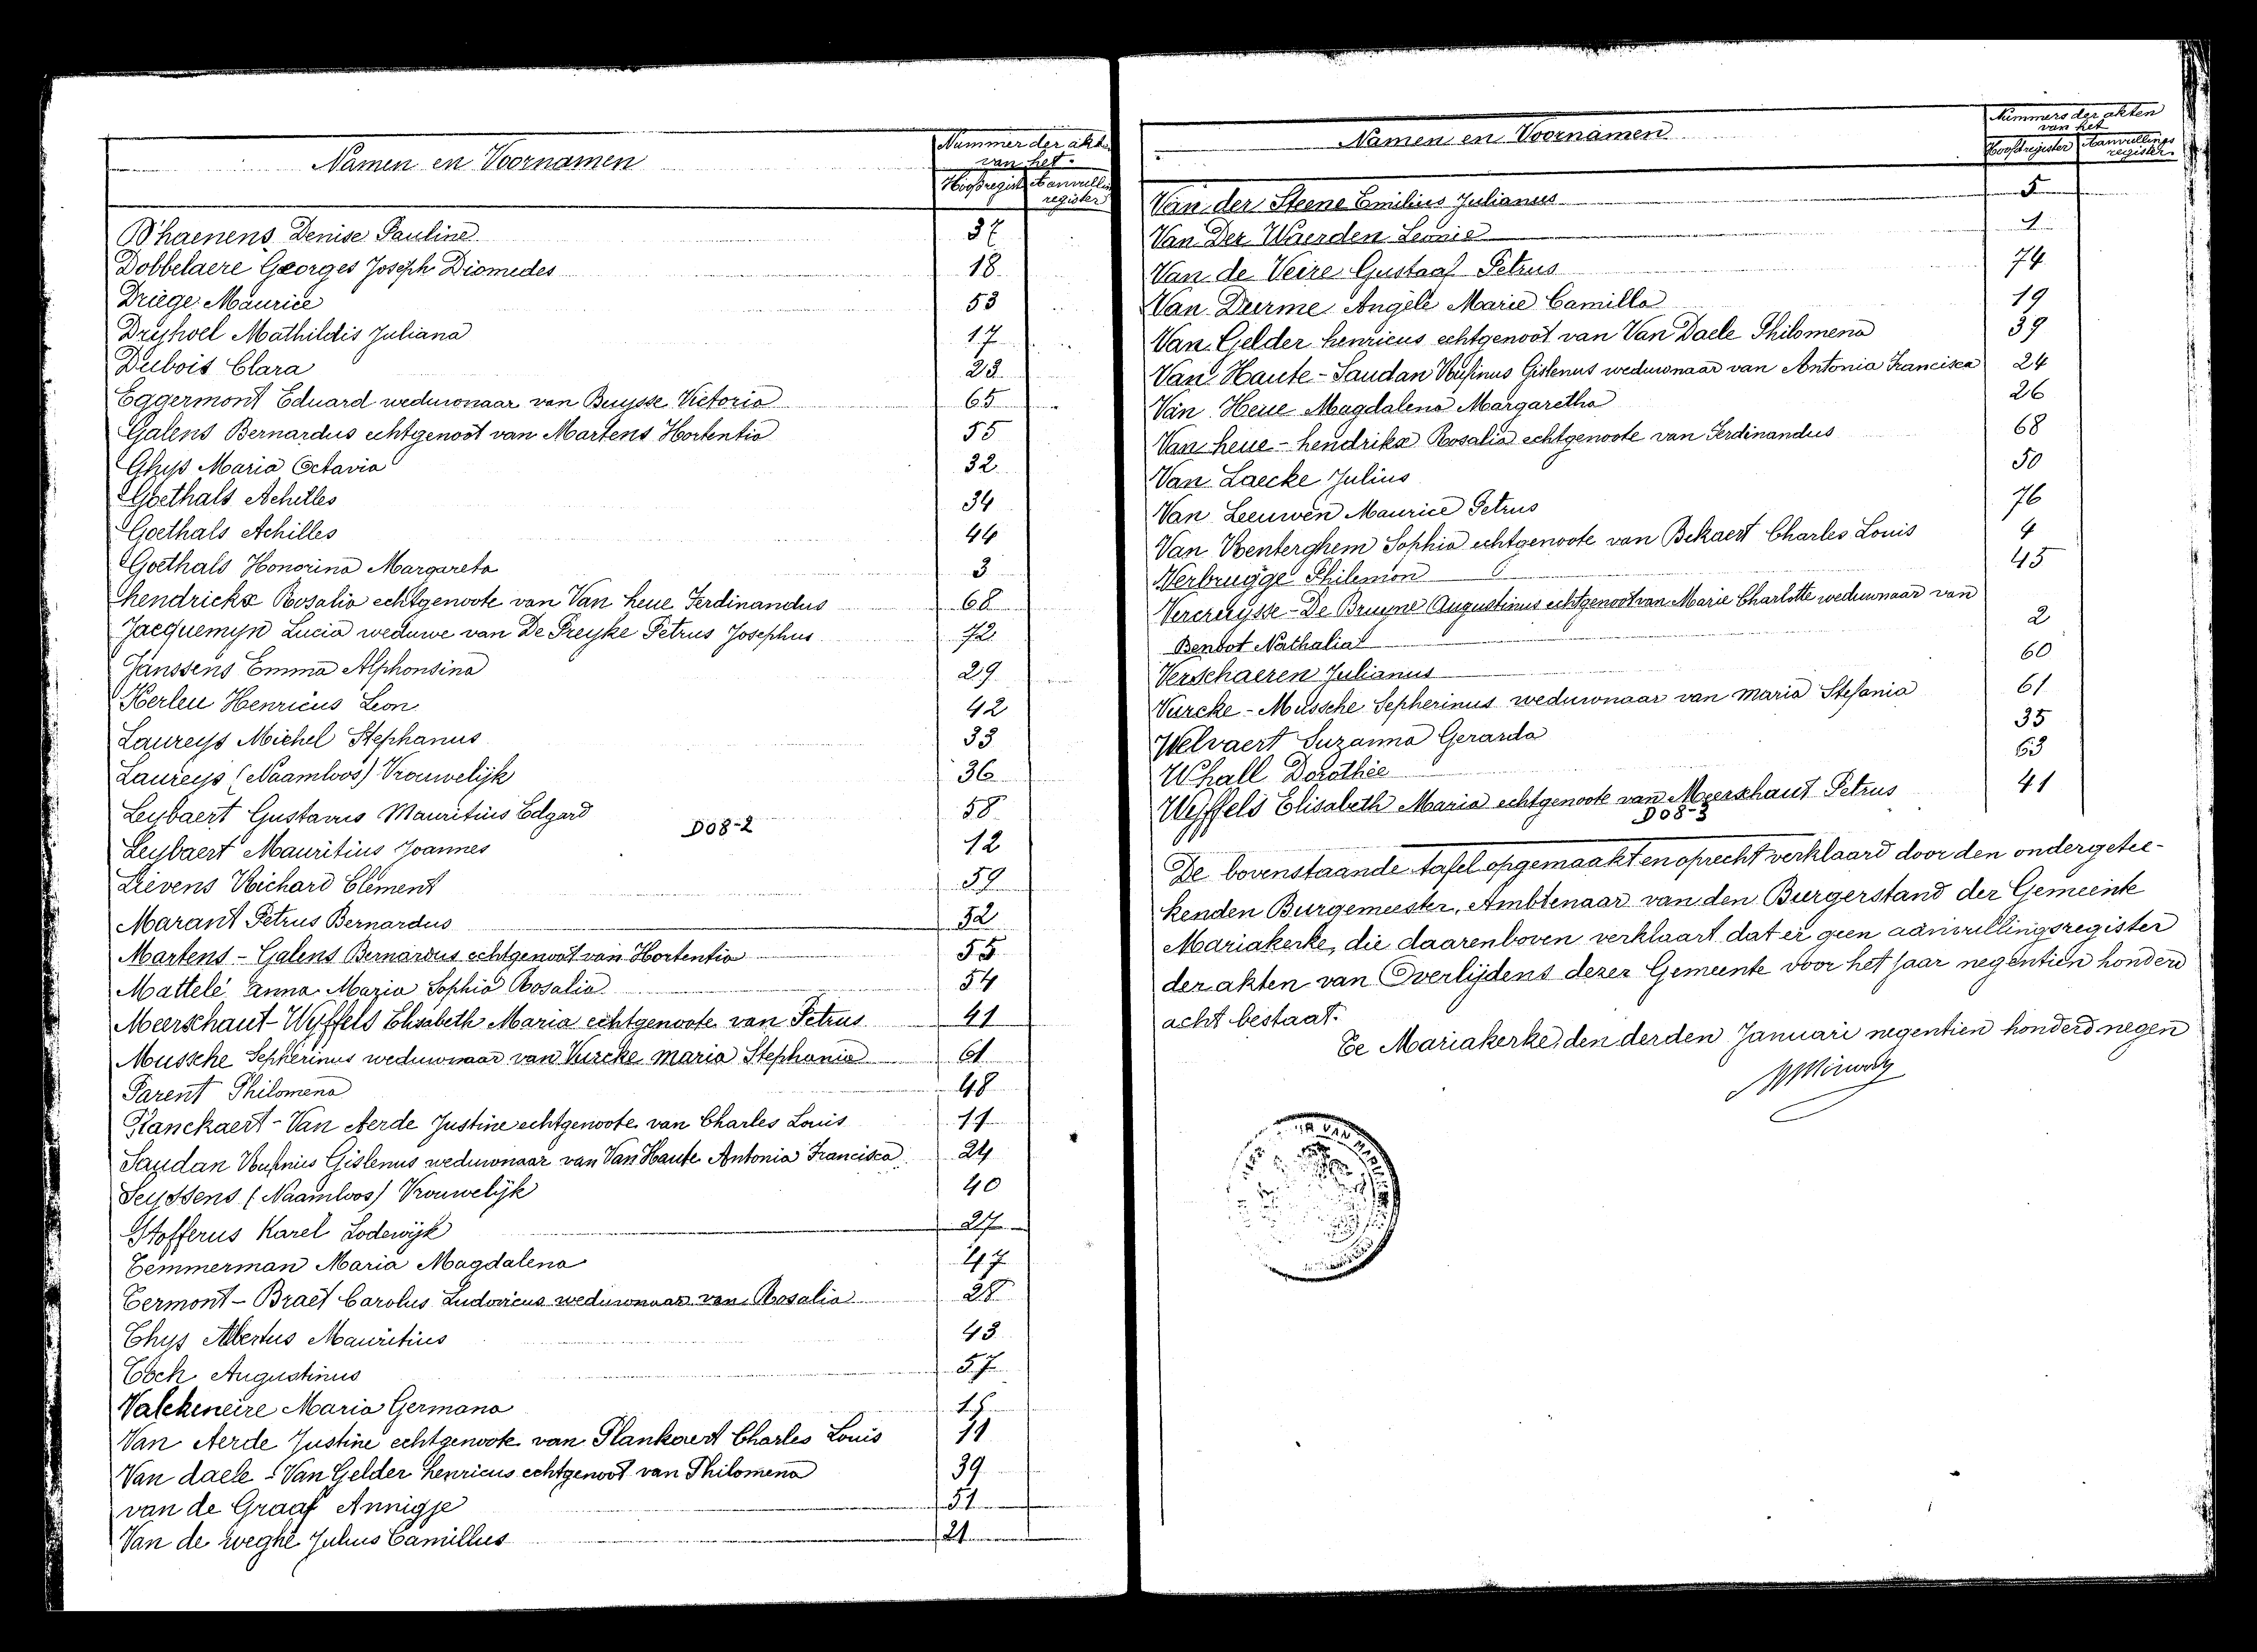 Namen en Voornamen
Nummer der akt
van het.
Hoofdregist Aanvullin
register
D'haenens Denise Pauline 37
Dobbelaere Georges Joseph Diomedes 18
Driege Maurice 53
Dryhoel Mathildis Juliana 17
Dubois Clara 23
Eggermont Eduard weduwnaar van Buysse Victoria 65
Galens Bernardus echtgenoot van Martens Hortentia 55
Ghys Maria Octavia 32
Goethals Achilles 34
Goethals Achilles 44
Goethals Honorina Margareta 3
hendrickx Rosalia echtgenoote van Van heue Ferdinandus 68
Jacquemyn Lucia weduwe van De Preyke Petrus Josephus 72
Janssens Emma Alphonsina 29
Kerleu Henricus Leon 42
Laureys Michel Stephanus 33
Laureys (Naamloos) Vrouwelijk 36
Leybaert Gustavus Mauritius Edgard 58
D08-2
Leybaert Mauritius Joannes 12
Lievens Richard Clement 59
Marant Petrus Bernardus 52
Martens - Galens Bernardus echtgenoot van Hortentia 55
Mattelé anna Maria Sophia Rosalia 54
Meerschaut-Wyffels Elisabeth Maria echtgenoote van Petrus 41
Mussche Sepherinus weduwnaar van Vurcke Maria Stephania 61
Parent Philomena 48
Planckaert-Van Aerde Justine echtgenoote van Charles Louis 11
Saudan Rufinus Gislenus weduwnaar van Van Haute Antonia Francisca 24
Seyssens (Naamloos) Vrouwelijk 40
Stofferus Karel Lodewijk 27
Temmerman Maria Magdalena 47
Termont - Braet Carolus Ludovicus weduwnaar van Rosalia 28
Thys Albertus Mauritius 43
Tock Augustinus 57
Valckeneire Maria Germana
Van Aerde Justine echtgenoote van Plankaert Charles Louis 11
Van daele - Van Gelder henricus echtgenoot van Philomena 39
van de Graaf Annigje 51
Van de weghe Julius Camillus 21
Namen en Voornamen
Nummers der akten
van het
Hoofdregister Aanvullings
register
Van der Steene Emilius Julianus 5
Van Der Waerden Leonie 1
Van de Veire Gustaaf Petrus 74
Van Durme Angèle Marie Camilla 19
Van Gelder henricus echtgenoot van Van Daele Philomena 39
Van Haute - Saudan Rufinus Gislenus weduwnaar van Antonia Francisca 24
Van Heue Magdalena Margaretha 26
Van heue - hendrikx Rosalia echtgenoote van Ferdinandus 68
Van Laecke Julius 50
Van Leeuwen Maurice Petrus 76
Van Renterghem Sophia echtgenoote van Bekaert Charles Louis 4
Verbrugge Philemon 45
Vercruysse - De Bruyne Augustinus echtgenoot van Marie Charlotte weduwnaar van
Benbot Nathalia 2
Verschaeren Julianus 60
Vurcke - Mussche Sepherinus weduwnaar van maria Stefania 61
Welvaert Suzanna Gerarda 35
Whall Dorothée 63
Wyffels Elisabeth Maria echtgenoote van Meerschaut Petrus 41
D08-3
De bovenstaande tafel opgemaakt en oprecht verklaard door den ondergetee-
kenden Burgemeester, Ambtenaar van den Burgerstand der Gemeente
Mariakerke, die daarenboven verklaart dat er geen aanvullingsregister
der akten van Overlijdens dezer Gemeente voor het jaar negentien honderd
acht bestaat.
Te Mariakerke, den derden Januari negentien honderd negen